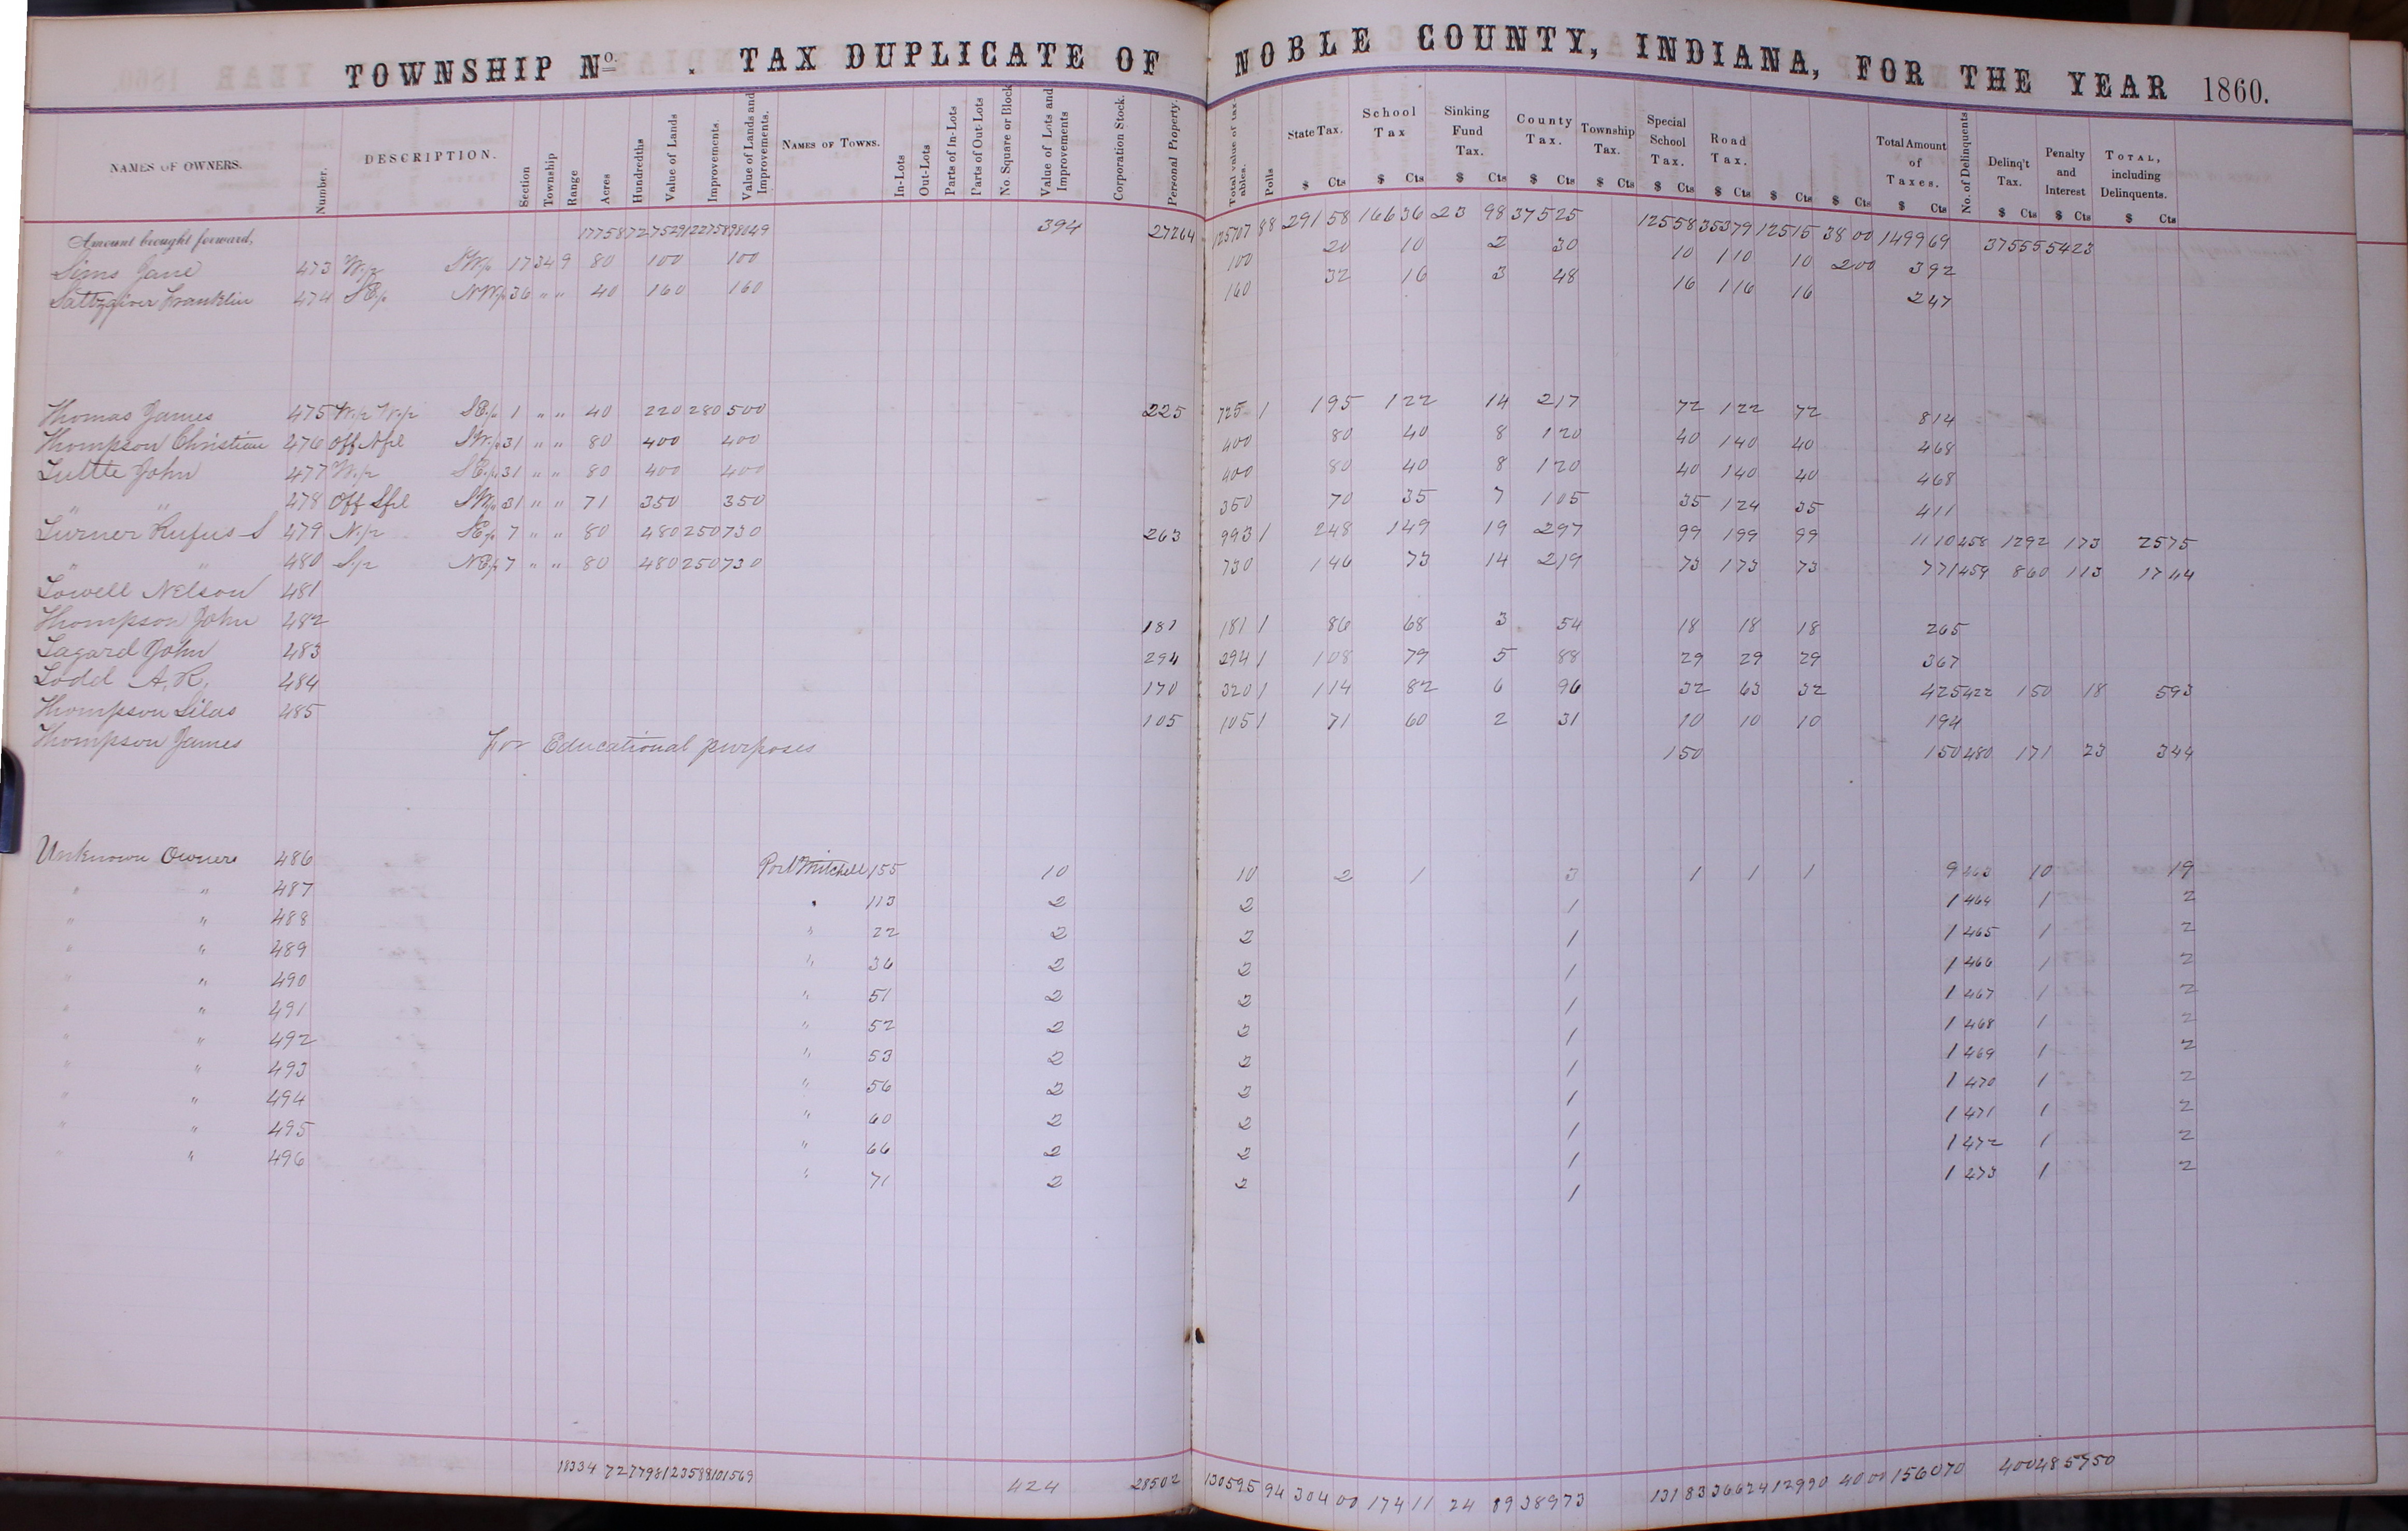 TOWNSHIP No. . TAX DUPLICATE OF NOBLE COUNTY, INDIANA, FOR THE YEAR 1860.
NAMES OF OWNERS. Number. DESCRIPTION. Section Township Range Acres Hundredths Value of Lands Improvements. Value of Lands and Improvements. NAMES OF TOWNS. In-Lots Out-Lots Parts of In-Lots Parts of Out-Lots No Square or Block Value of Lots and Improvements Corporation Stock. Personal Property. Total value of taxables. Polls State Tax. School Tax Sinking Fund Tax. County Tax. Township Tax. Special School Tax. Road Tax. Total Amount of Taxes. No. of Delinquents Delinq't Tax. Penalty and Interest TOTAL, including Delinquents.
$ Cts $ Cts $ Cts $ Cts $ Cts $ Cts $ Cts $ Cts $ Cts $ Cts $ Cts $ Cts $ Cts
Amount brought forward, 17758 72 75291 22758 98049 394 27264 125707 88 291 58 166 36 23 98 375 25 125 58 353 79 125 15 38 00 1499 69 375 55 54 23
Sims Jane 473 W.p S.W.p 17 34 9 80 100 100 100 20 10 2 30 10 1 10 10 2 00 3 92
Saltzgiver Franklin 474 S.E.p N.W.p 36 " " 40 160 160 160 32 16 3 48 16 1 16 16 2 47
Thomas James 475 W.p W.p S.E.p 1 " " 40 220 280 500 225 725 1 1 95 1 22 14 2 17 72 1 22 72 8 14
Thompson Christian 476 Off N.pl S.W.p 31 " " 80 400 400 400 80 40 8 1 20 40 1 40 40 4 68
Tuttle John 477 W.p S.E.p 31 " " 80 400 400 400 80 40 8 1 20 40 1 40 40 4 68
" " 478 Off S.pl S.W.p 31 " " 71 350 350 350 70 35 7 1 05 35 1 24 35 4 11
Turner Rufus S 479 N.p S.E.p 7 " " 80 480 250 730 263 993 1 2 48 1 49 19 2 97 99 1 99 99 11 10 458 12 92 1 73 25 75
" " 480 S.p N.E.p 7 " " 80 480 250 730 730 1 46 73 14 2 19 73 1 73 73 7 71 459 8 60 1 13 17 44
Towell Nelson 481
Thompson John 482 181 181 1 86 68 3 54 18 18 18 2 65
Tagard John 483 294 294 1 1 08 79 5 88 29 29 29 3 67
Todd A. R. 484 170 320 1 1 14 82 6 96 32 63 32 4 25 422 1 50 18 5 93
Thompson Silas 485 105 105 1 71 60 2 31 10 10 10 1 94
Thompson James For Educational purposes 1 50 1 50 480 1 71 23 3 44
Unknown Owners 486 Port Mitchell 155 10 10 2 1 3 1 1 1 9 463 10 19
" " 487 " 113 2 2 1 1 464 1 2
" " 488 " 22 2 2 1 1 465 1 2
" " 489 " 36 2 2 1 1 466 1 2
" " 490 " 51 2 2 1 1 467 1 2
" " 491 " 52 2 2 1 1 468 1 2
" " 492 " 53 2 2 1 1 469 1 2
" " 493 " 56 2 2 1 1 470 1 2
" " 494 " 60 2 2 1 1 471 1 2
" " 495 " 66 2 2 1 1 472 1 2
" " 496 " 71 2 2 1 1 473 1 2
18334 72 77981 23588 101569 424 28502 130595 94 304 00 174 11 24 89 389 73 131 83 366 24 129 90 40 00 1560 70 400 48 57 50